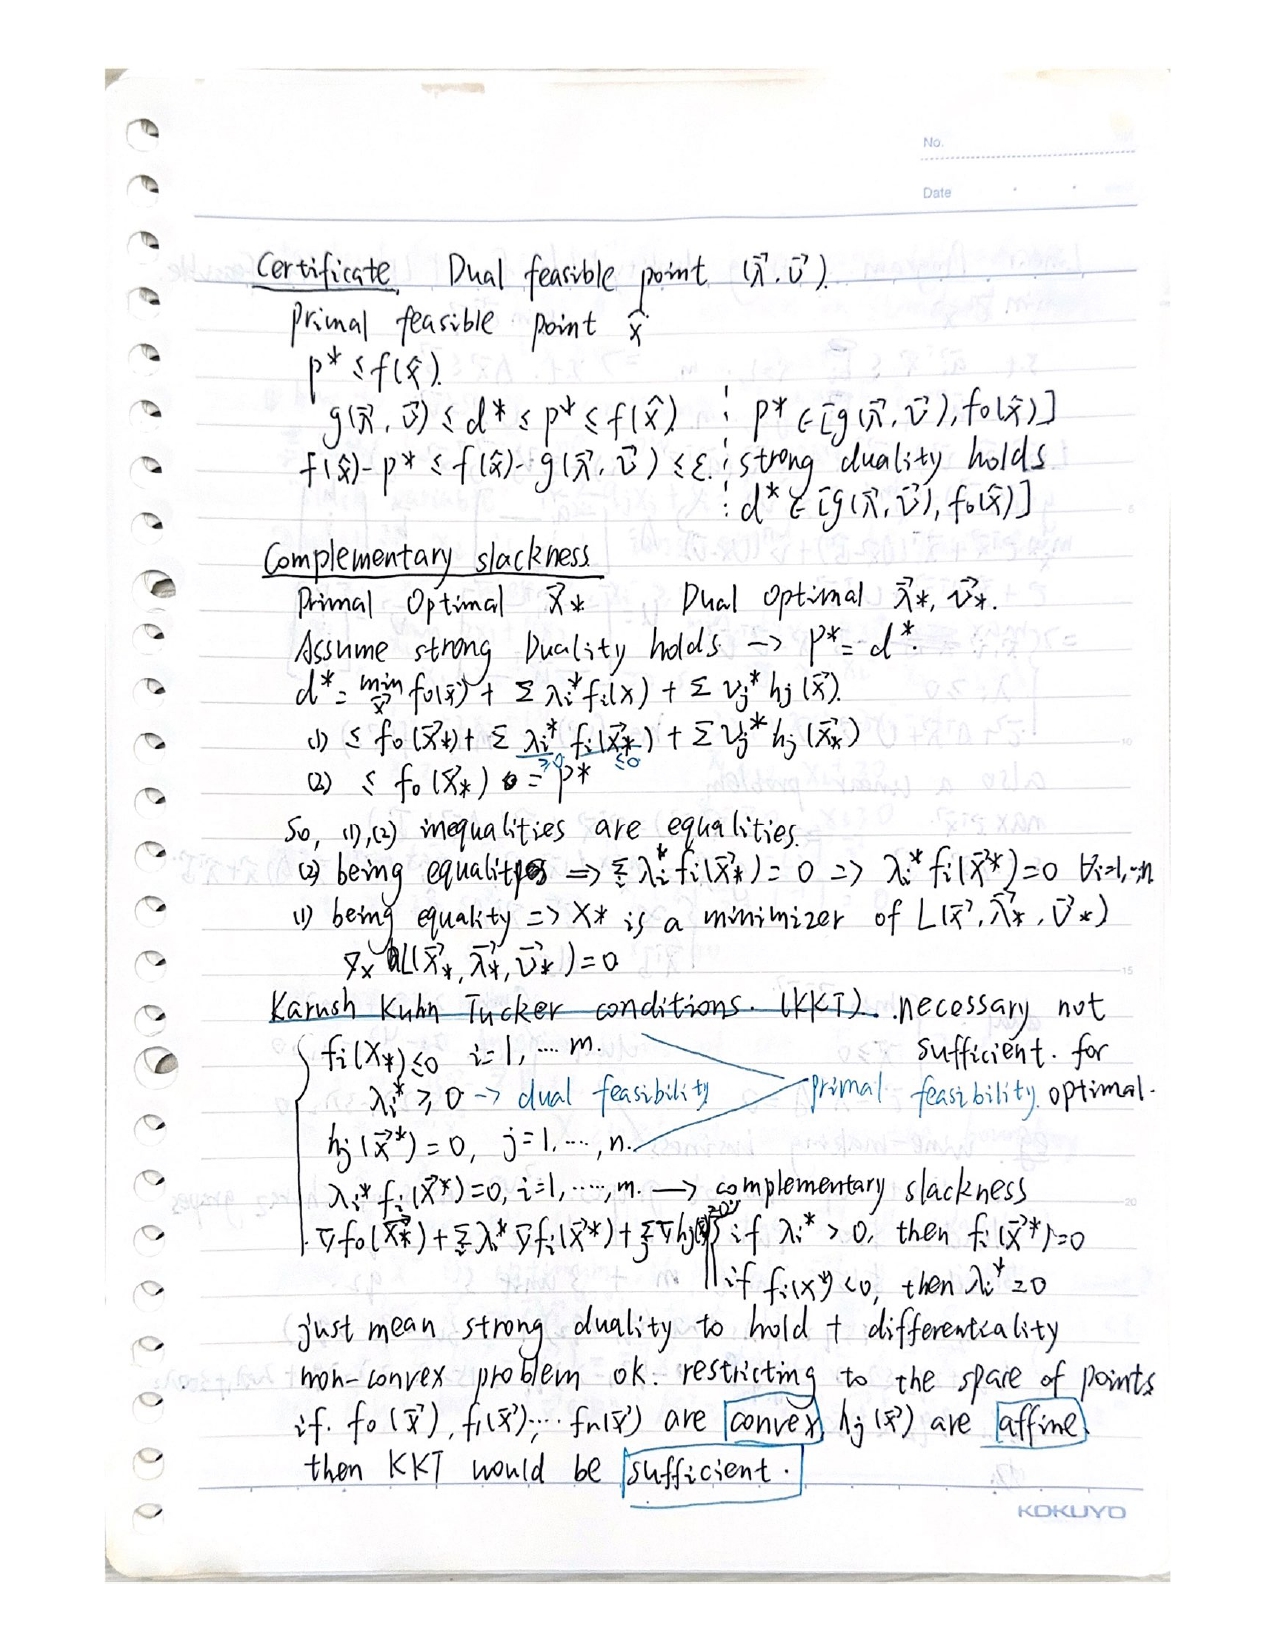 No.
Date
Certificate Dual feasible point (λ⃗, ν⃗).
Primal feasible point x̂
p* ≤ f(x̂).
g(λ⃗, ν⃗) ≤ d* ≤ p* ≤ f(x̂) p* ∈ [g(λ⃗, ν⃗), f₀(x̂)]
f(x̂) - p* ≤ f(x̂) - g(λ⃗, ν⃗) ≤ ε. strong duality holds
d* ∈ [g(λ⃗, ν⃗), f₀(x̂)]
Complementary slackness
Primal Optimal x⃗* Dual Optimal λ⃗*, ν⃗*.
Assume strong Duality holds → p* = d*.
d* = min_x⃗ f₀(x⃗) + Σ λᵢ* fᵢ(x) + Σ νⱼ* hⱼ(x⃗).
(1) ≤ f₀(x⃗*) + Σ λᵢ* fᵢ(x⃗*) + Σ νⱼ* hⱼ(x⃗*)
≥0 ≤0
(2) ≤ f₀(x⃗*) = p*
So, (1),(2) inequalities are equalities.
(2) being equality ⇒ Σᵢ λᵢ* fᵢ(x⃗*) = 0 ⇒ λᵢ* fᵢ(x⃗*) = 0 ∀i=1,...,n
(1) being equality ⇒ x* is a minimizer of L(x⃗, λ⃗*, ν⃗*)
∇ₓ L(x⃗*, λ⃗*, ν⃗*) = 0
Karush Kuhn Tucker conditions. (KKT). necessary not
fᵢ(x*) ≤ 0 i=1, .... m. sufficient. for
λᵢ* ≥ 0 → dual feasibility primal feasibility. optimal.
hⱼ(x⃗*) = 0, j=1, ..., n.
λᵢ* fᵢ(x⃗*) = 0, i=1, ....., m. → complementary slackness
∇f₀(x⃗*) + Σᵢ λᵢ* ∇fᵢ(x⃗*) + Σⱼ ∇hⱼ(x⃗) =0 if λᵢ* > 0, then fᵢ(x⃗*) = 0
if fᵢ(x*) < 0, then λᵢ* = 0
just mean strong duality to hold + differentiality
non-convex problem ok. restricting to the space of points
if. f₀(x⃗), f₁(x⃗), ... fₙ(x⃗) are convex, hⱼ(x⃗) are affine.
then KKT would be sufficient.
KOKUYO